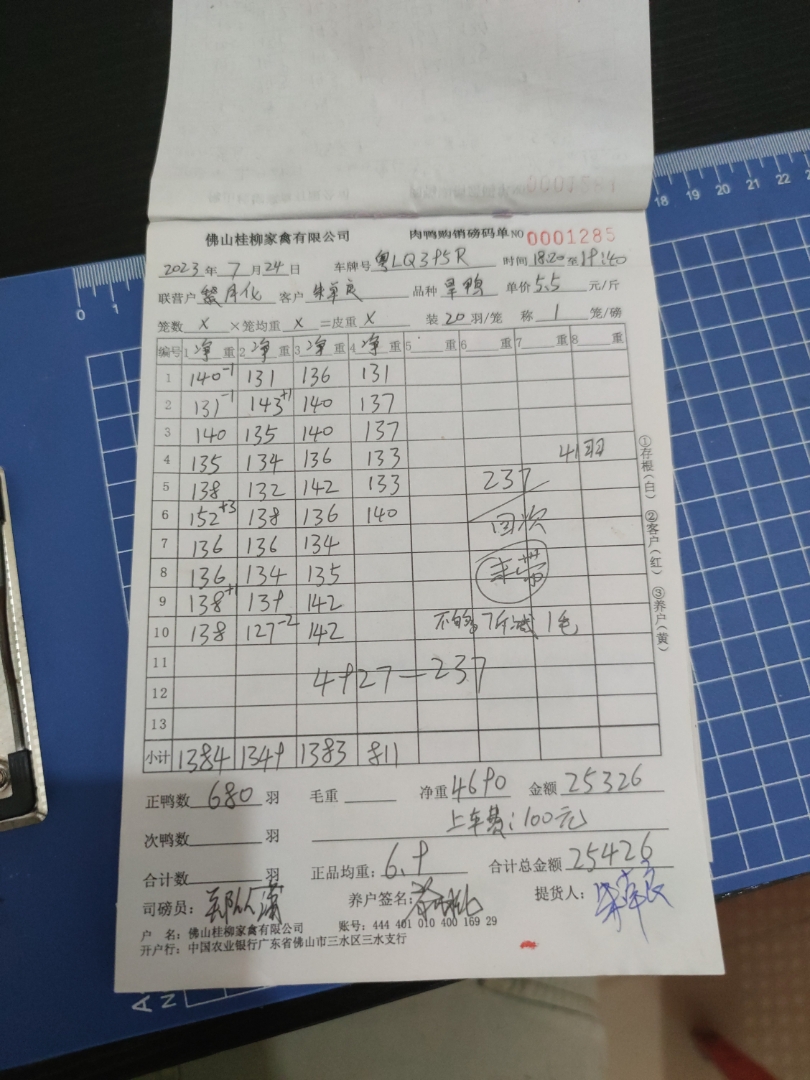 佛山桂柳家禽有限公司 肉鸭购销磅码单 NO 0001285
2023年7月24日 车牌号 粤LQ395R 时间 18:20至19:40
联营户 客户 品种 旱鸭 单价 5.5 元/斤
笼数 X ×笼均重 X =皮重 X 装 20 羽/笼 称 1 笼/磅
编号 1 净 重 2 净 重 3 净 重 4 净 重 5 重 6 重 7 重 8 重
1 140-1 131 136 131
2 131-1 143+1 140 137
3 140 135 140 137
4 135 134 136 133 41羽
5 138 132 142 133 237
6 152+3 138 136 140 回次
7 136 136 134
8 136 134 135 未带
9 138+1 139 142
10 138 127-2 142 不够7斤减1毛
11
4927-237
12
13
小计 1384 1349 1383 811
正鸭数 680 羽 毛重 净重 4690 金额 25326
次鸭数 羽 上车费:100元
合计数 羽 正品均重: 6.9 合计总金额 25426
司磅员: 养户签名: 提货人:
户 名: 佛山桂柳家禽有限公司 账号: 444 401 010 400 169 29
开户行: 中国农业银行广东省佛山市三水区三水支行
①存根(白) ②客户(红) ③养户(黄)